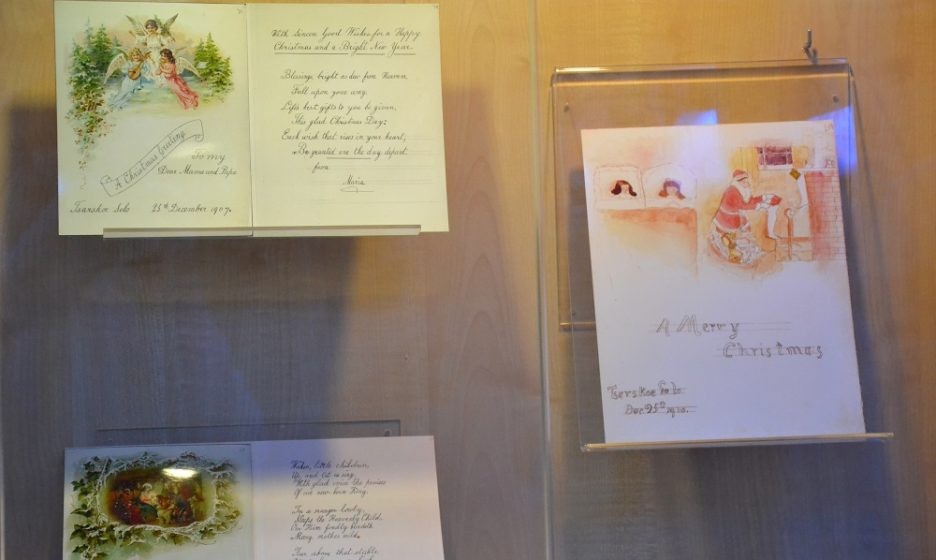 A Christmas Greeting
To my
Dear Mama and Papa
Tsarskoe Selo 25th December 1907.
With Sincere Good Wishes for a Happy
Christmas and a Bright New Year.
Blessings bright as dew from Heaven,
Fall upon your way.
Life's best gifts to you be given,
This glad Christmas Day:
Each wish that rises in your heart,
Be granted ere the day depart.
from
Maria
A Merry
Christmas
Tserskoe
Dec. 25th 1910.
Wake, little children,
Up and
With glad voice the praises
Of our new-born King.
In a manger lowly,
Sleeps the Heavenly Child,
O'er Him fondly bendeth
Mary, mother mild.
Far above that stable